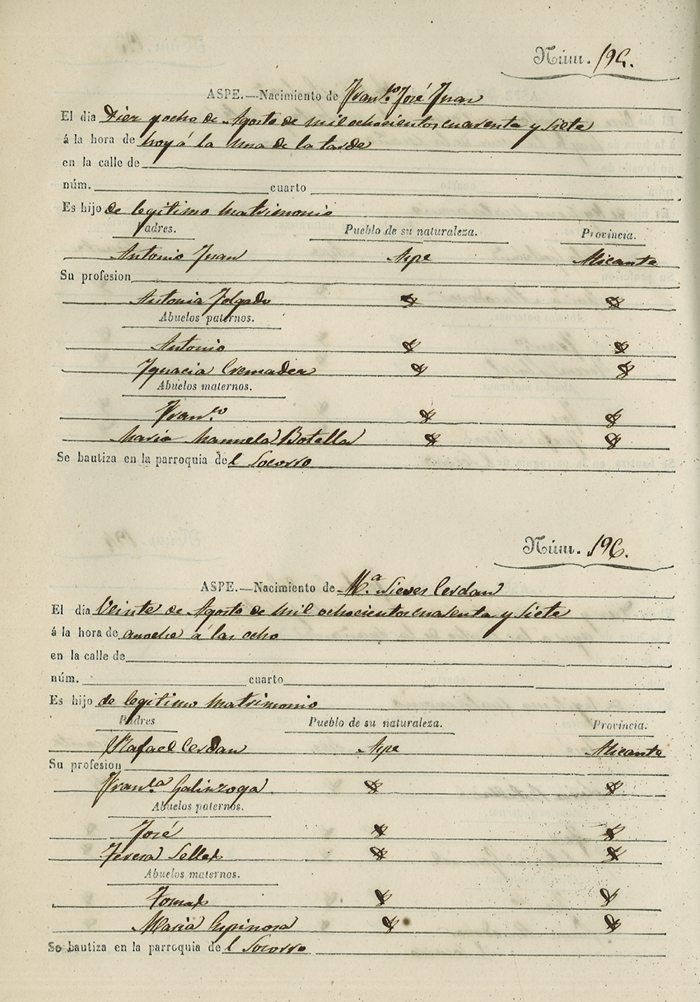 Núm. 195.
ASPE.—Nacimiento de Fran.co José Juan
El dia Diez y ocho de Agosto de mil ochocientos cuarenta y siete
á la hora de hoy á la una de la tarde
en la calle de
núm. cuarto
Es hijo de legitimo matrimonio
Padres. Pueblo de su naturaleza. Provincia.
Antonio Juan Aspe Alicante
Su profesion
Antonia
Abuelos paternos.
Antonio
Ignacia Cremades
Abuelos maternos.
Fran.co
Maria Manuela Botella
Se bautiza en la parroquia del Socorro
Núm. 196.
ASPE.—Nacimiento de M.a Nieves Cerdan
El dia Veinte de Agosto de mil ochocientos cuarenta y siete
á la hora de anoche á las ocho
en la calle de
núm. cuarto
Es hijo de legitimo matrimonio
Padres Pueblo de su naturaleza. Provincia.
Rafael Cerdan Aspe Alicante
Su profesion
Fran.ca Galinzoga
Abuelos paternos.
José
Teresa Selles
Abuelos maternos.
Tomas
Maria Espinosa
Se bautiza en la parroquia del Socorro